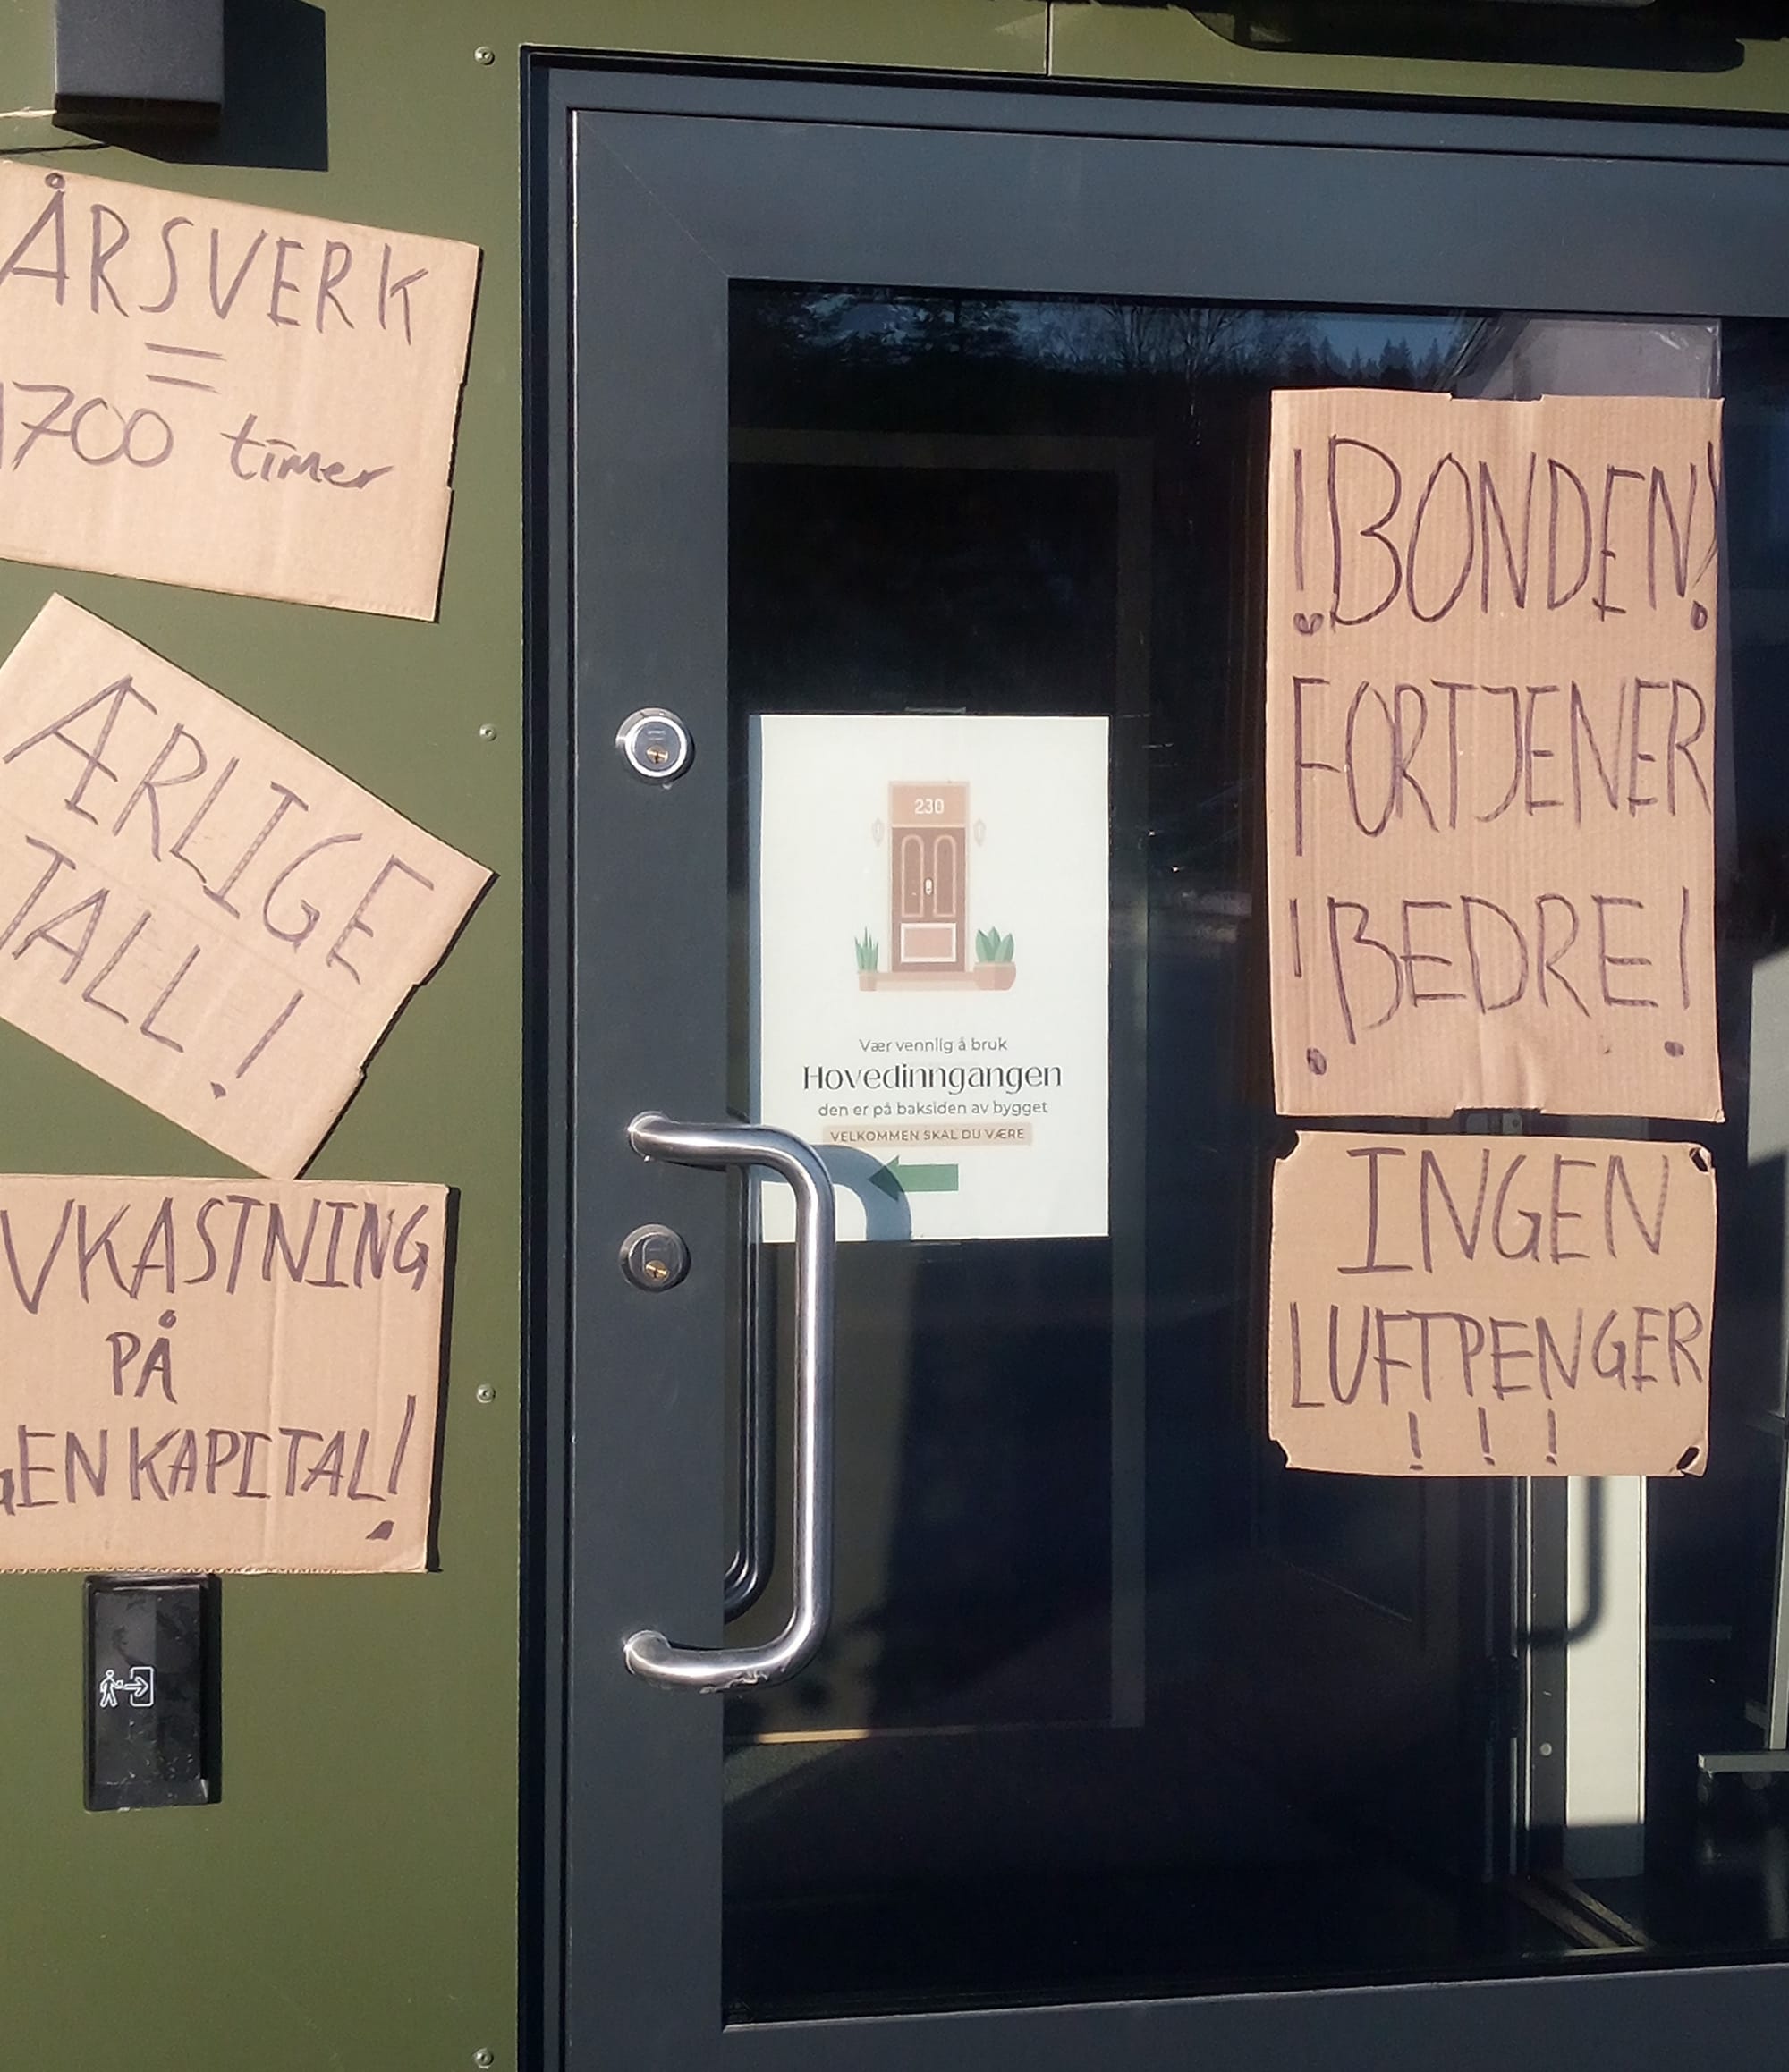 ÅRSVERK
=
1700 timer
ÆRLIGE
TALL!
VKASTNING
PÅ
GENKAPITAL!
230
Vær vennlig å bruk
Hovedinngangen
den er på baksiden av bygget
VELKOMMEN SKAL DU VÆRE
!BONDEN!
FORTJENER
!BEDRE!
INGEN
LUFTPENGER
!!!